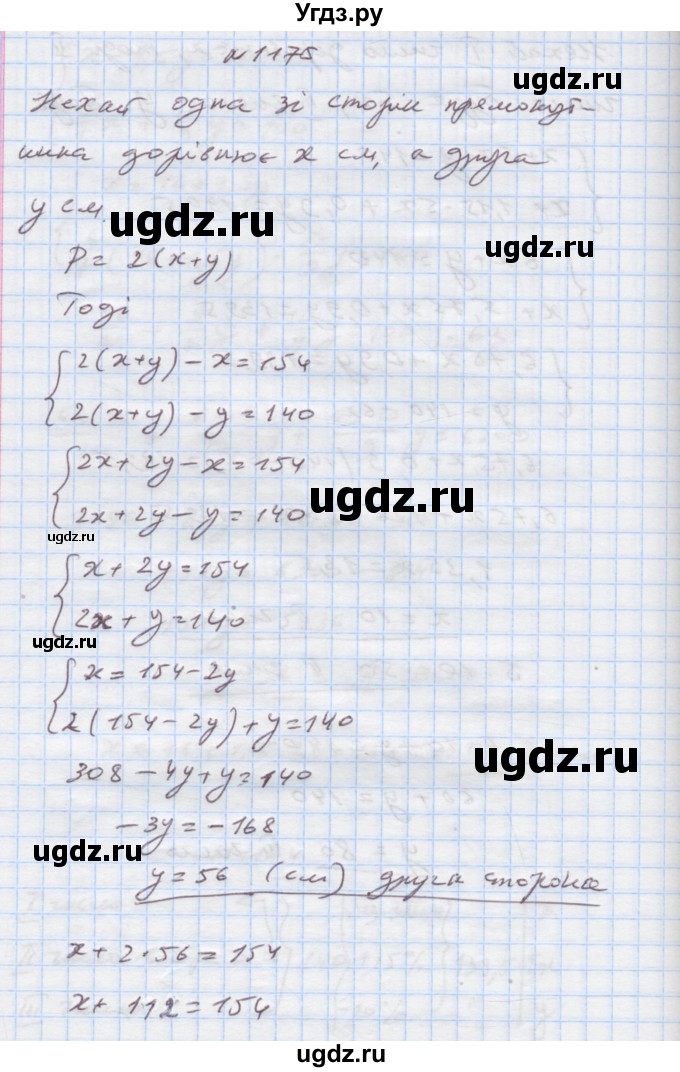 Угдз.ру
№1175
ugdz.ru
Нехай одна зі сторін прямокут-
ника дорівнює x см, а друга
y см.
ugdz.ru
ugdz.ru
P = 2(x+y)
Тоді
{ 2(x+y) - x = 154
2(x+y) - y = 140
{ 2x + 2y - x = 154
ugdz.ru
2x + 2y - y = 140
ugdz.ru
{ x + 2y = 154
2x + y = 140
ugdz.ru
ugdz.ru
{ x = 154 - 2y
2(154 - 2y) + y = 140
308 - 4y + y = 140
ugdz.ru
-3y = -168
ugdz.ru
y = 56 (см) друга сторона
x + 2·56 = 154
x + 112 = 154
ugdz.ru